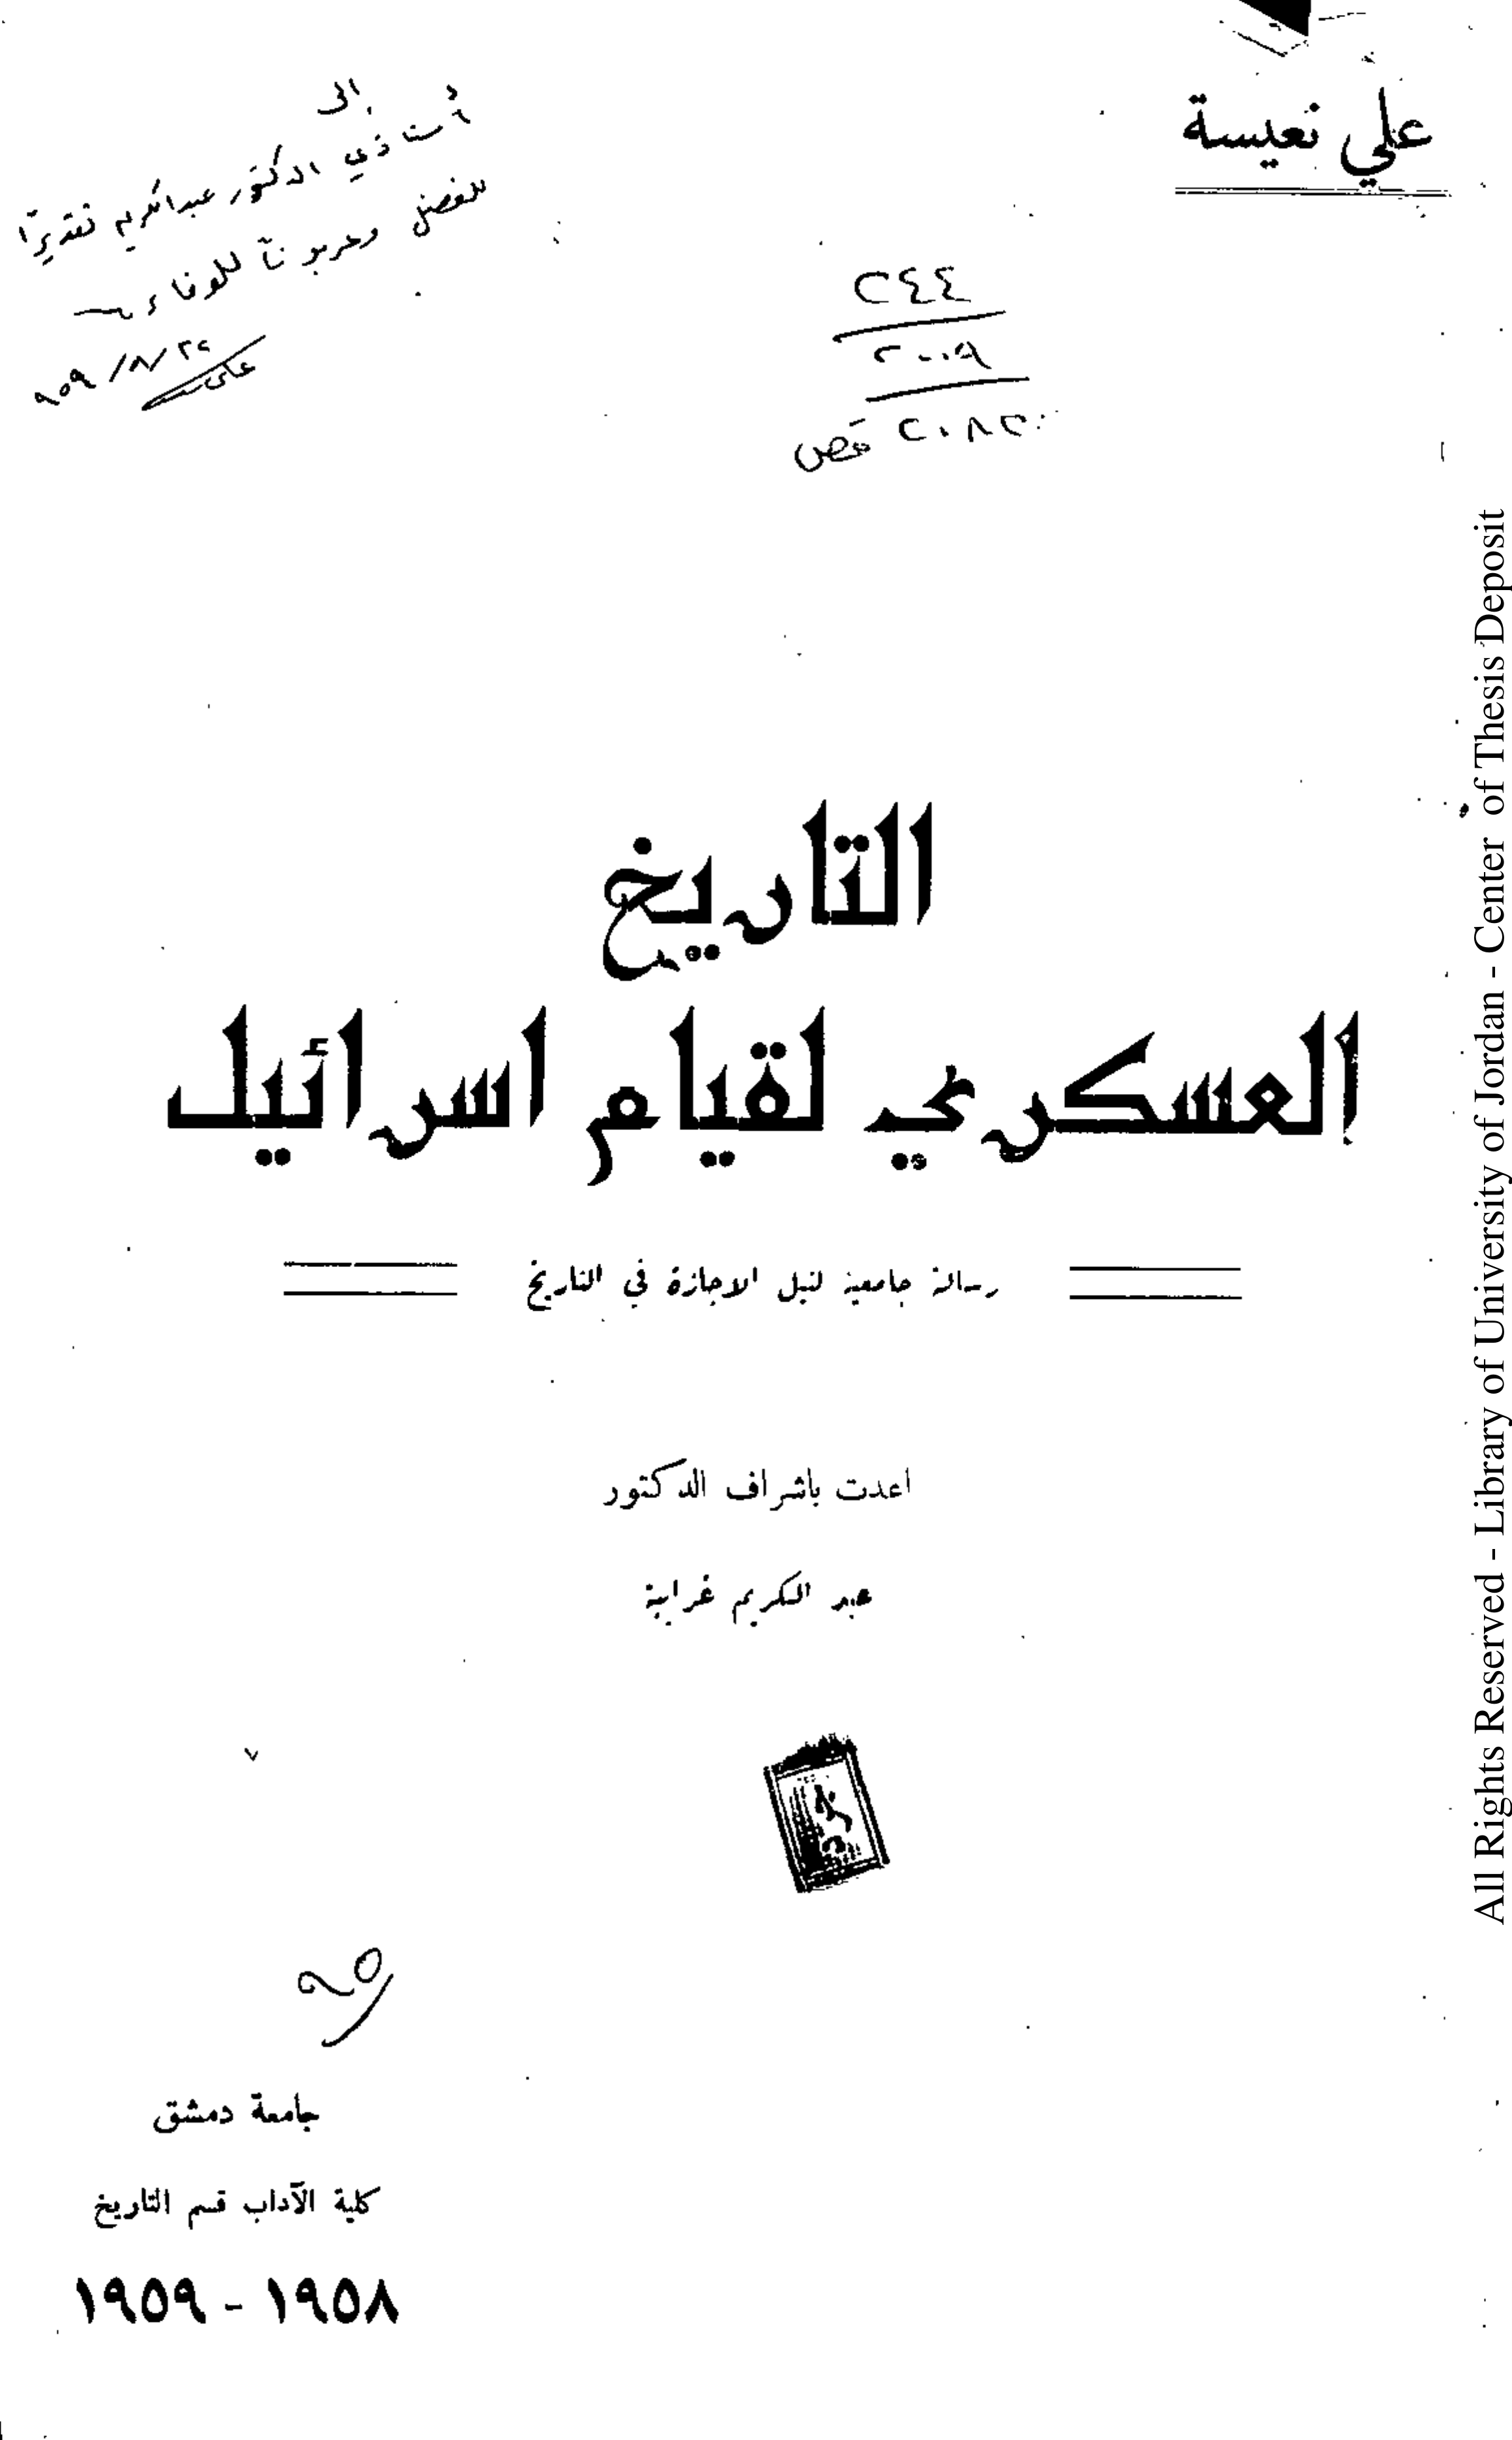 علي نعيسة
الى
أستاذي الدكتور عبدالكريم تقديرًا
للفضل وعربونًا للوفاء
علي
٢٤٤
٢٠٠٩
٢٠٨٢
التاريخ
العسكري لقيام اسرائيل
رسالة جامعية لنيل الاجازة في التاريخ
اعدت باشراف الدكتور
عبد الكريم غرايبة
جامعة دمشق
كلية الآداب قسم التاريخ
١٩٥٨ - ١٩٥٩
All Rights Reserved - Library of University of Jordan - Center of Thesis Deposit